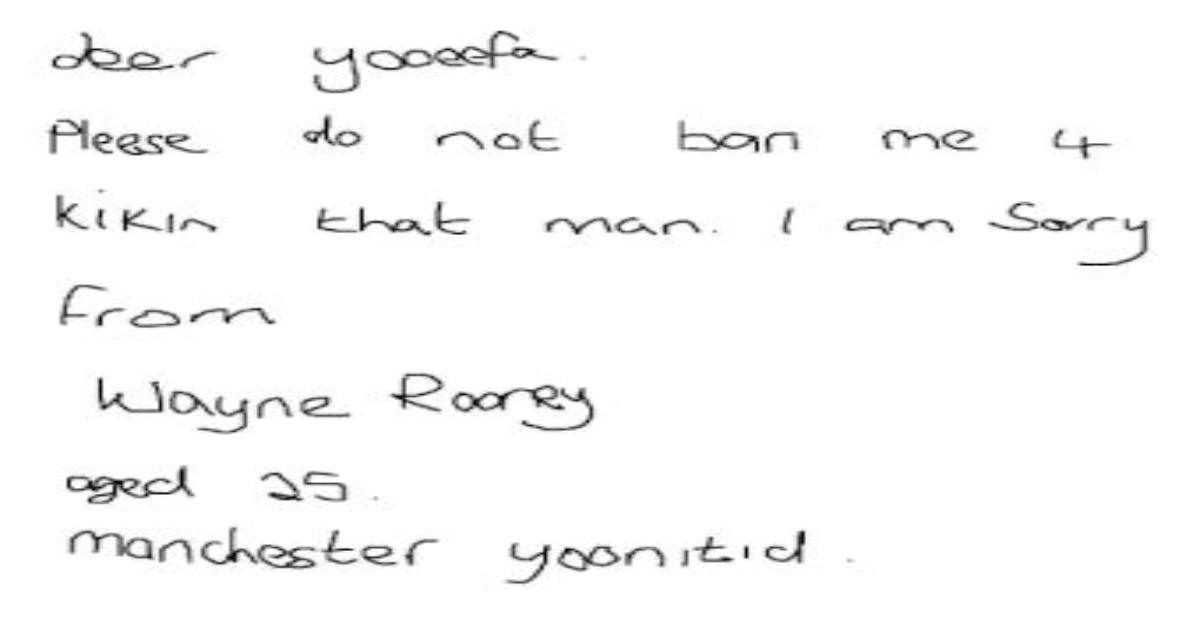 deer yooeefa.
Pleese do not ban me 4
kikin that man. I am Sorry
from
Wayne Rooney
aged 25.
manchester yoonitid.